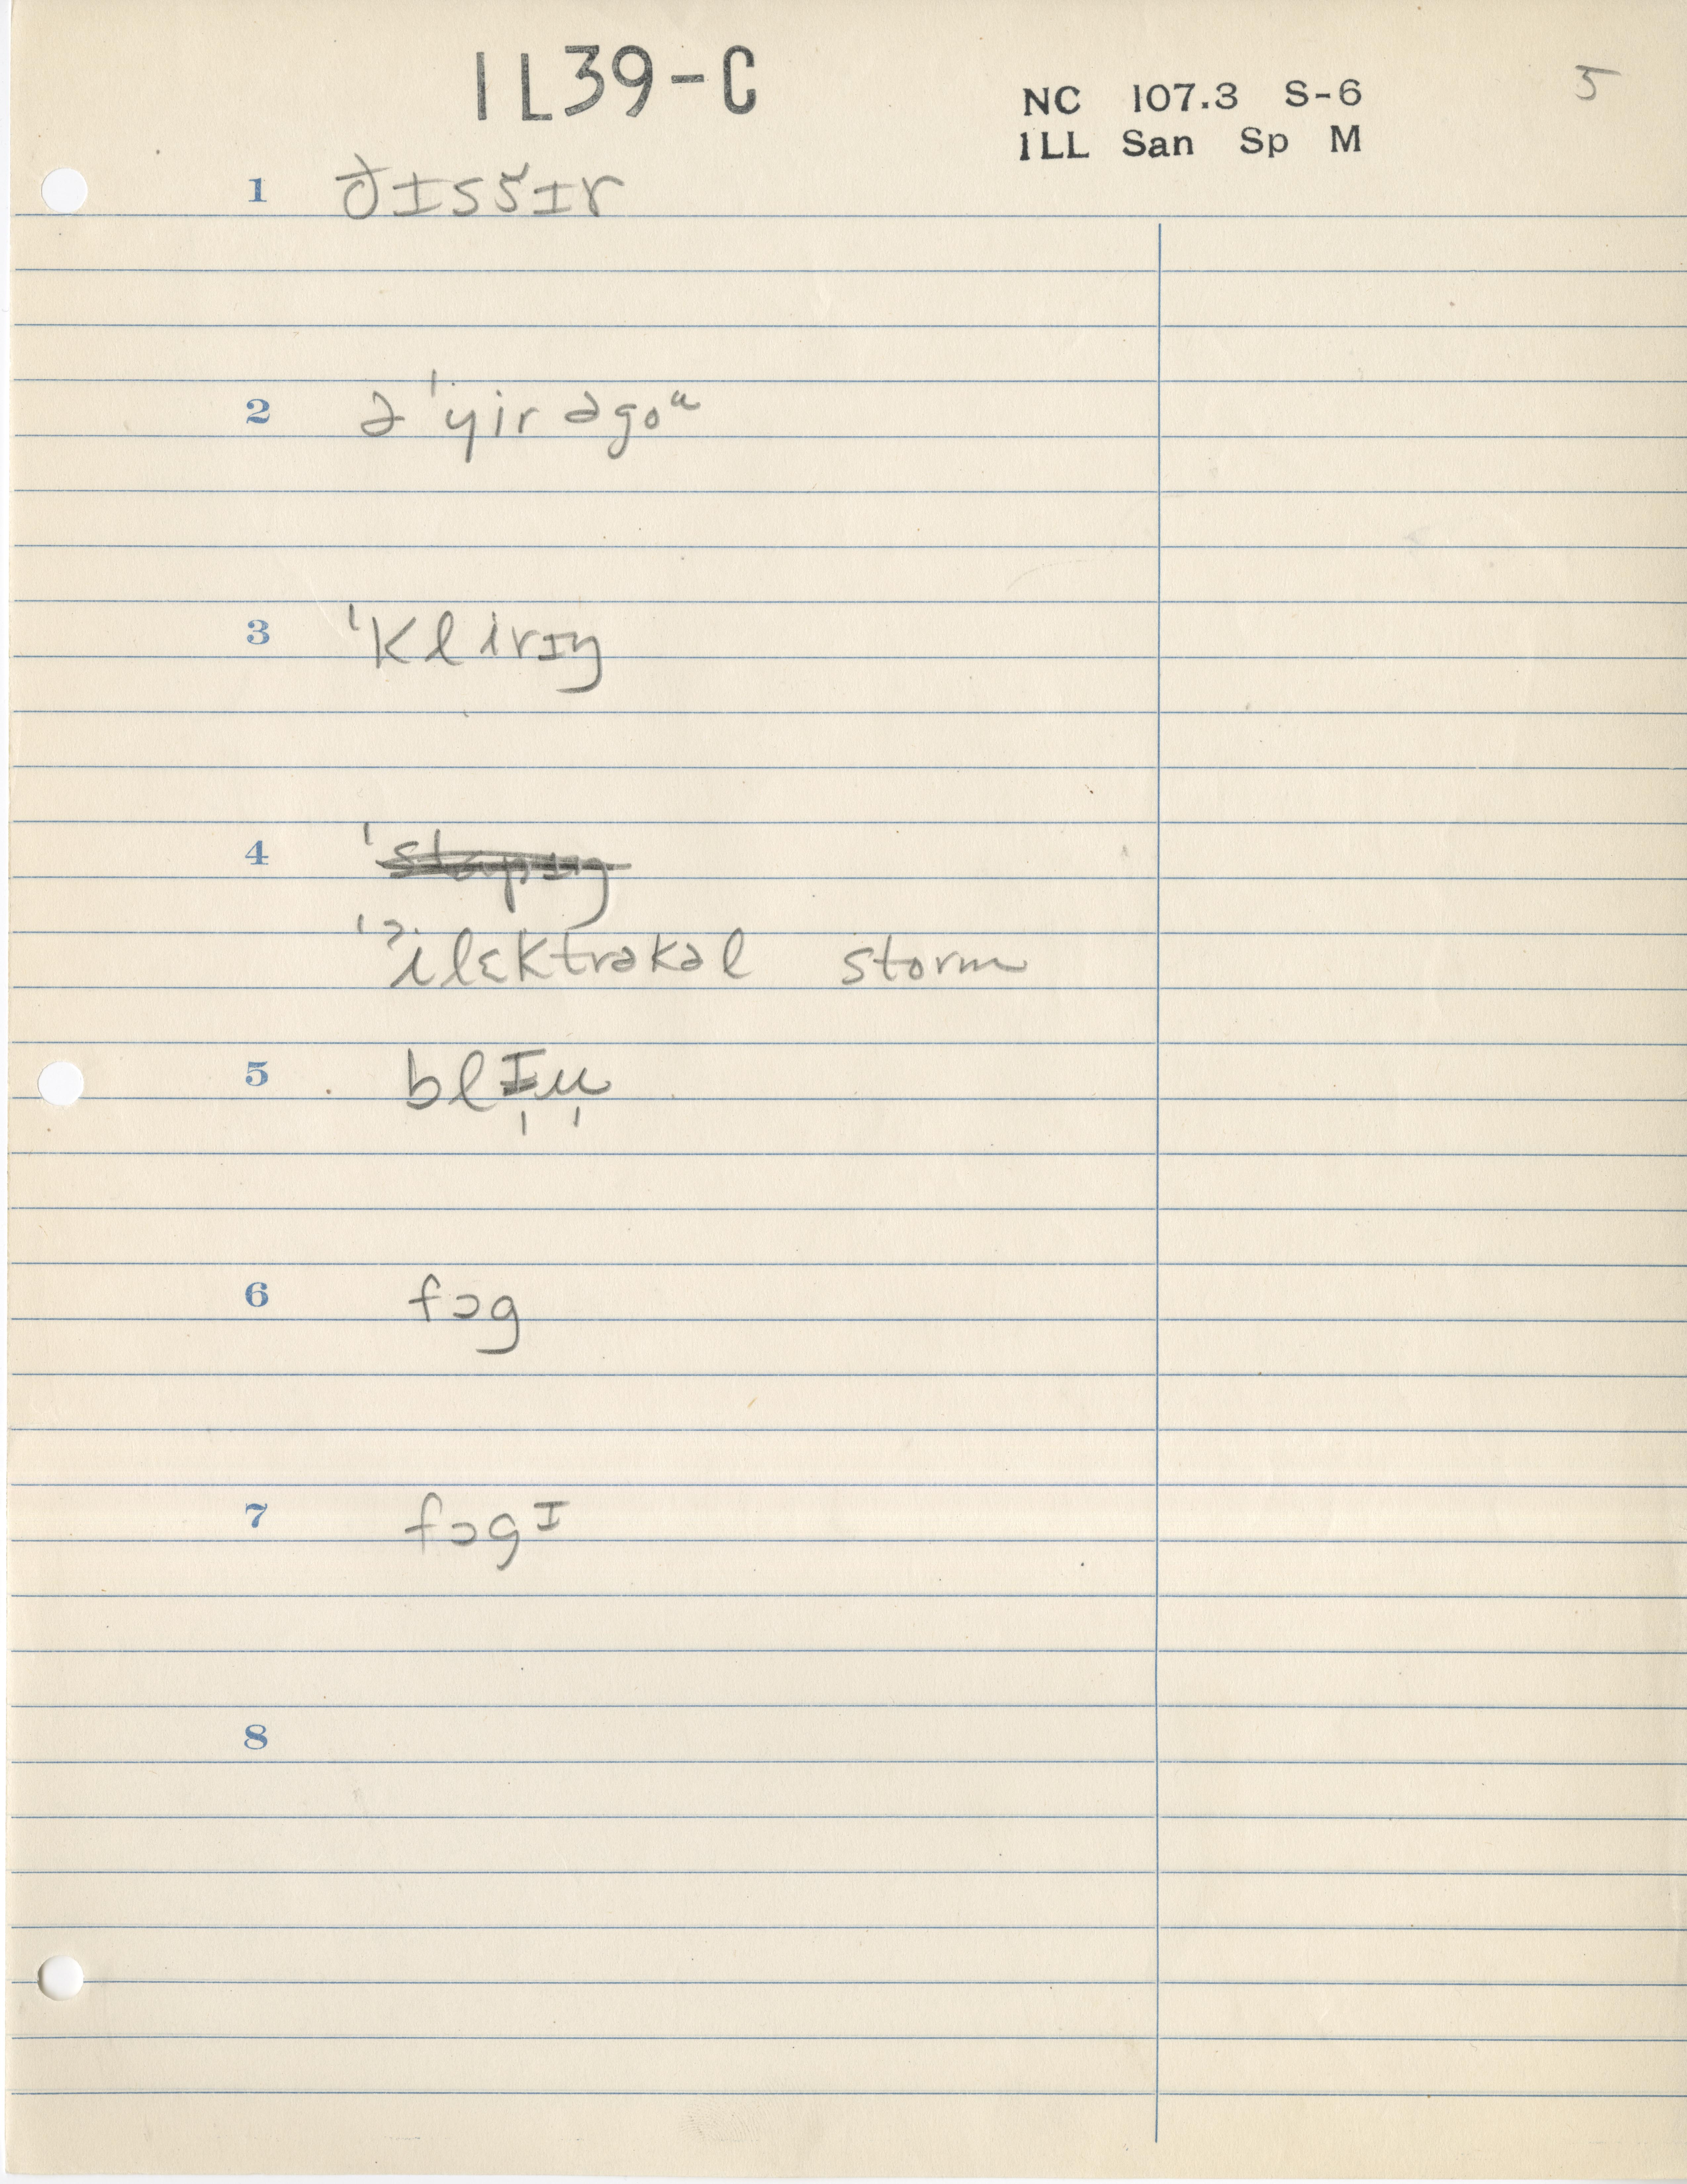 1L39-C
NC 107.3 S-6
5
1LL San Sp M
1 ðɪsšɪr
2 ə ˈyir əgoᵘ
3 ˈklirɪŋ
4 ˈstapɪŋ
ˈˀilɛktrəkəl storm
5 blɪ̩u̩
6 fɔg
7 fɔgɪ
8